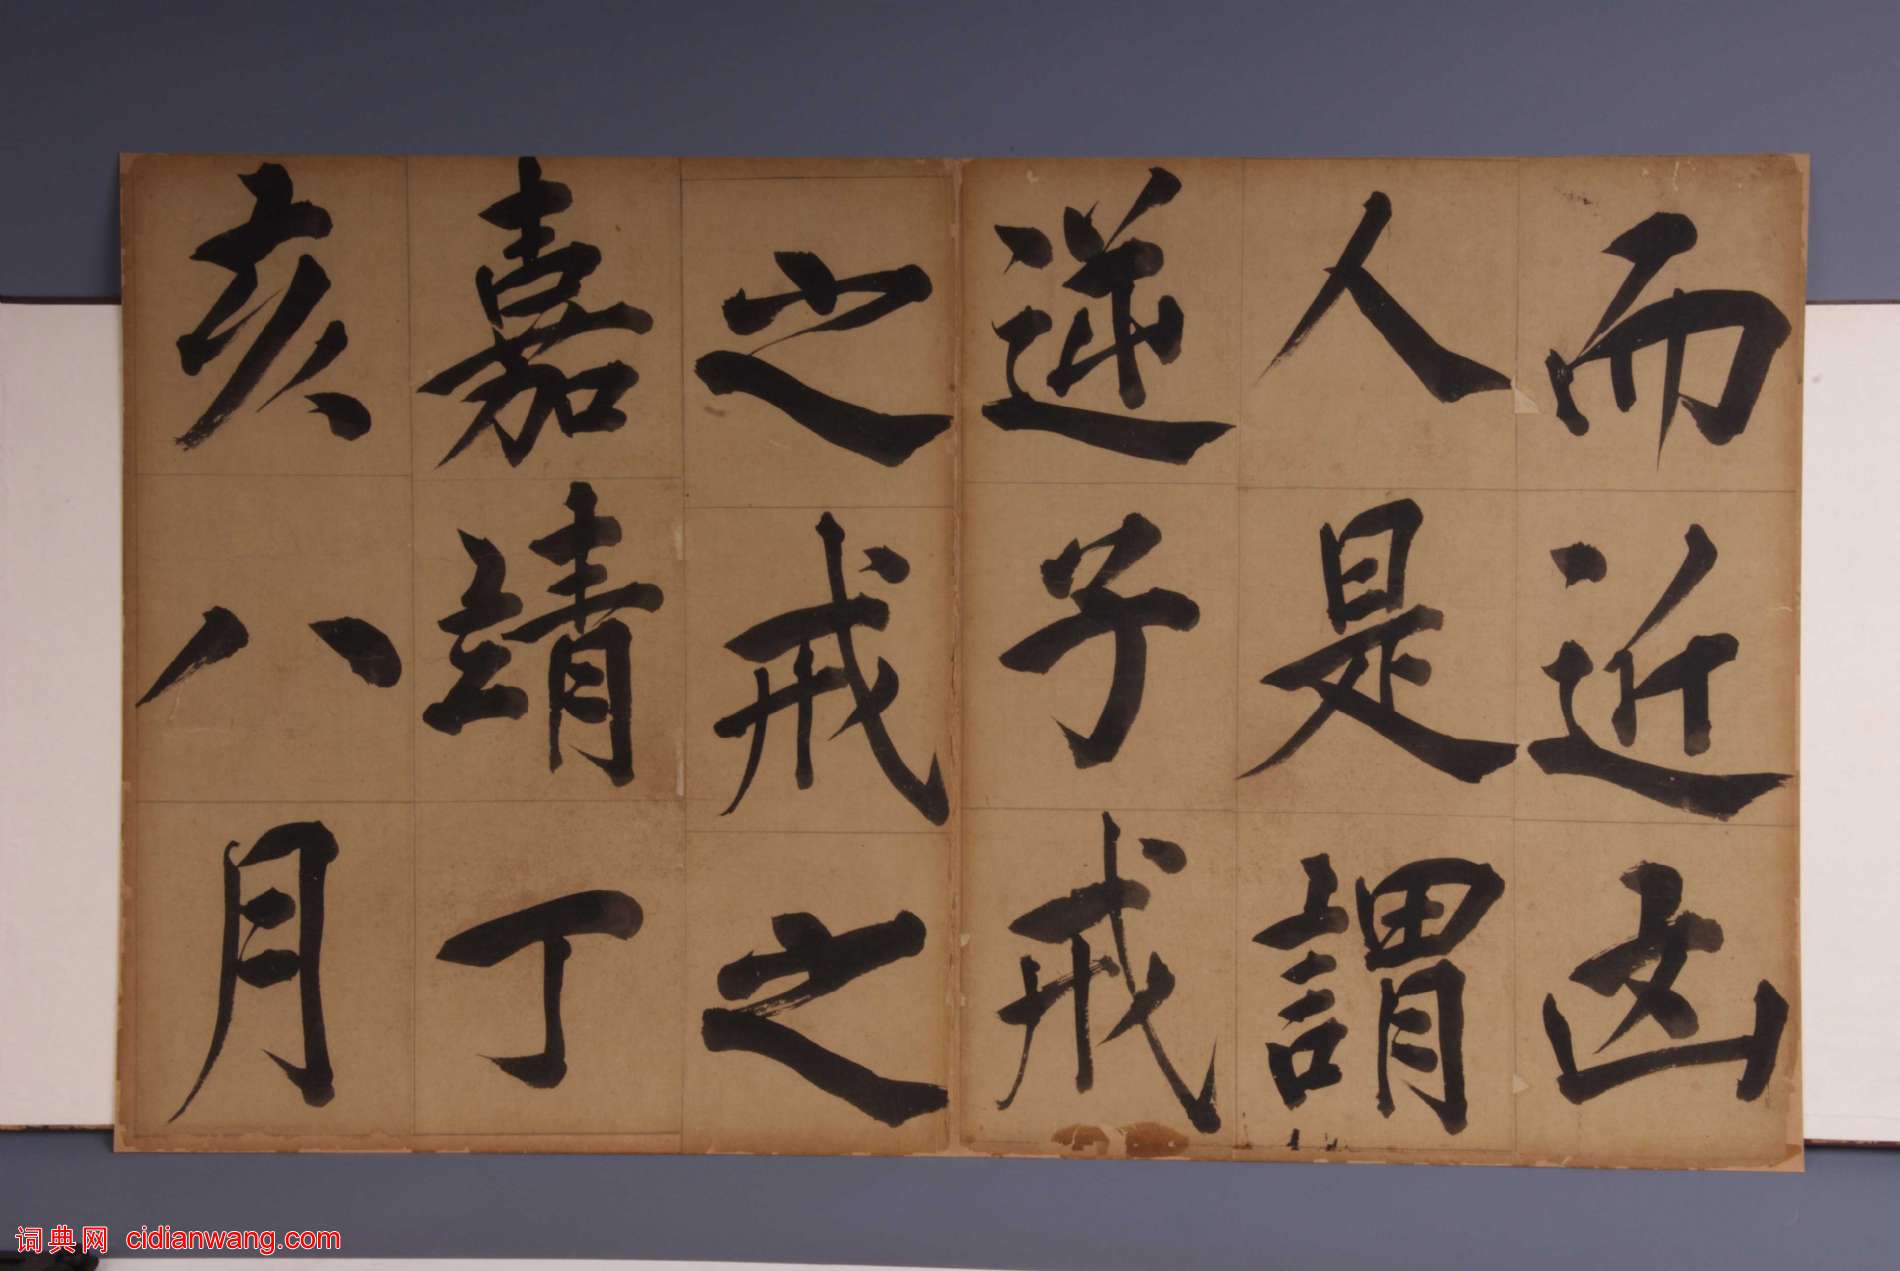 而近凶
人是謂
逆子戒
之戒之
嘉靖丁
亥八月
词典网 cidianwang.com